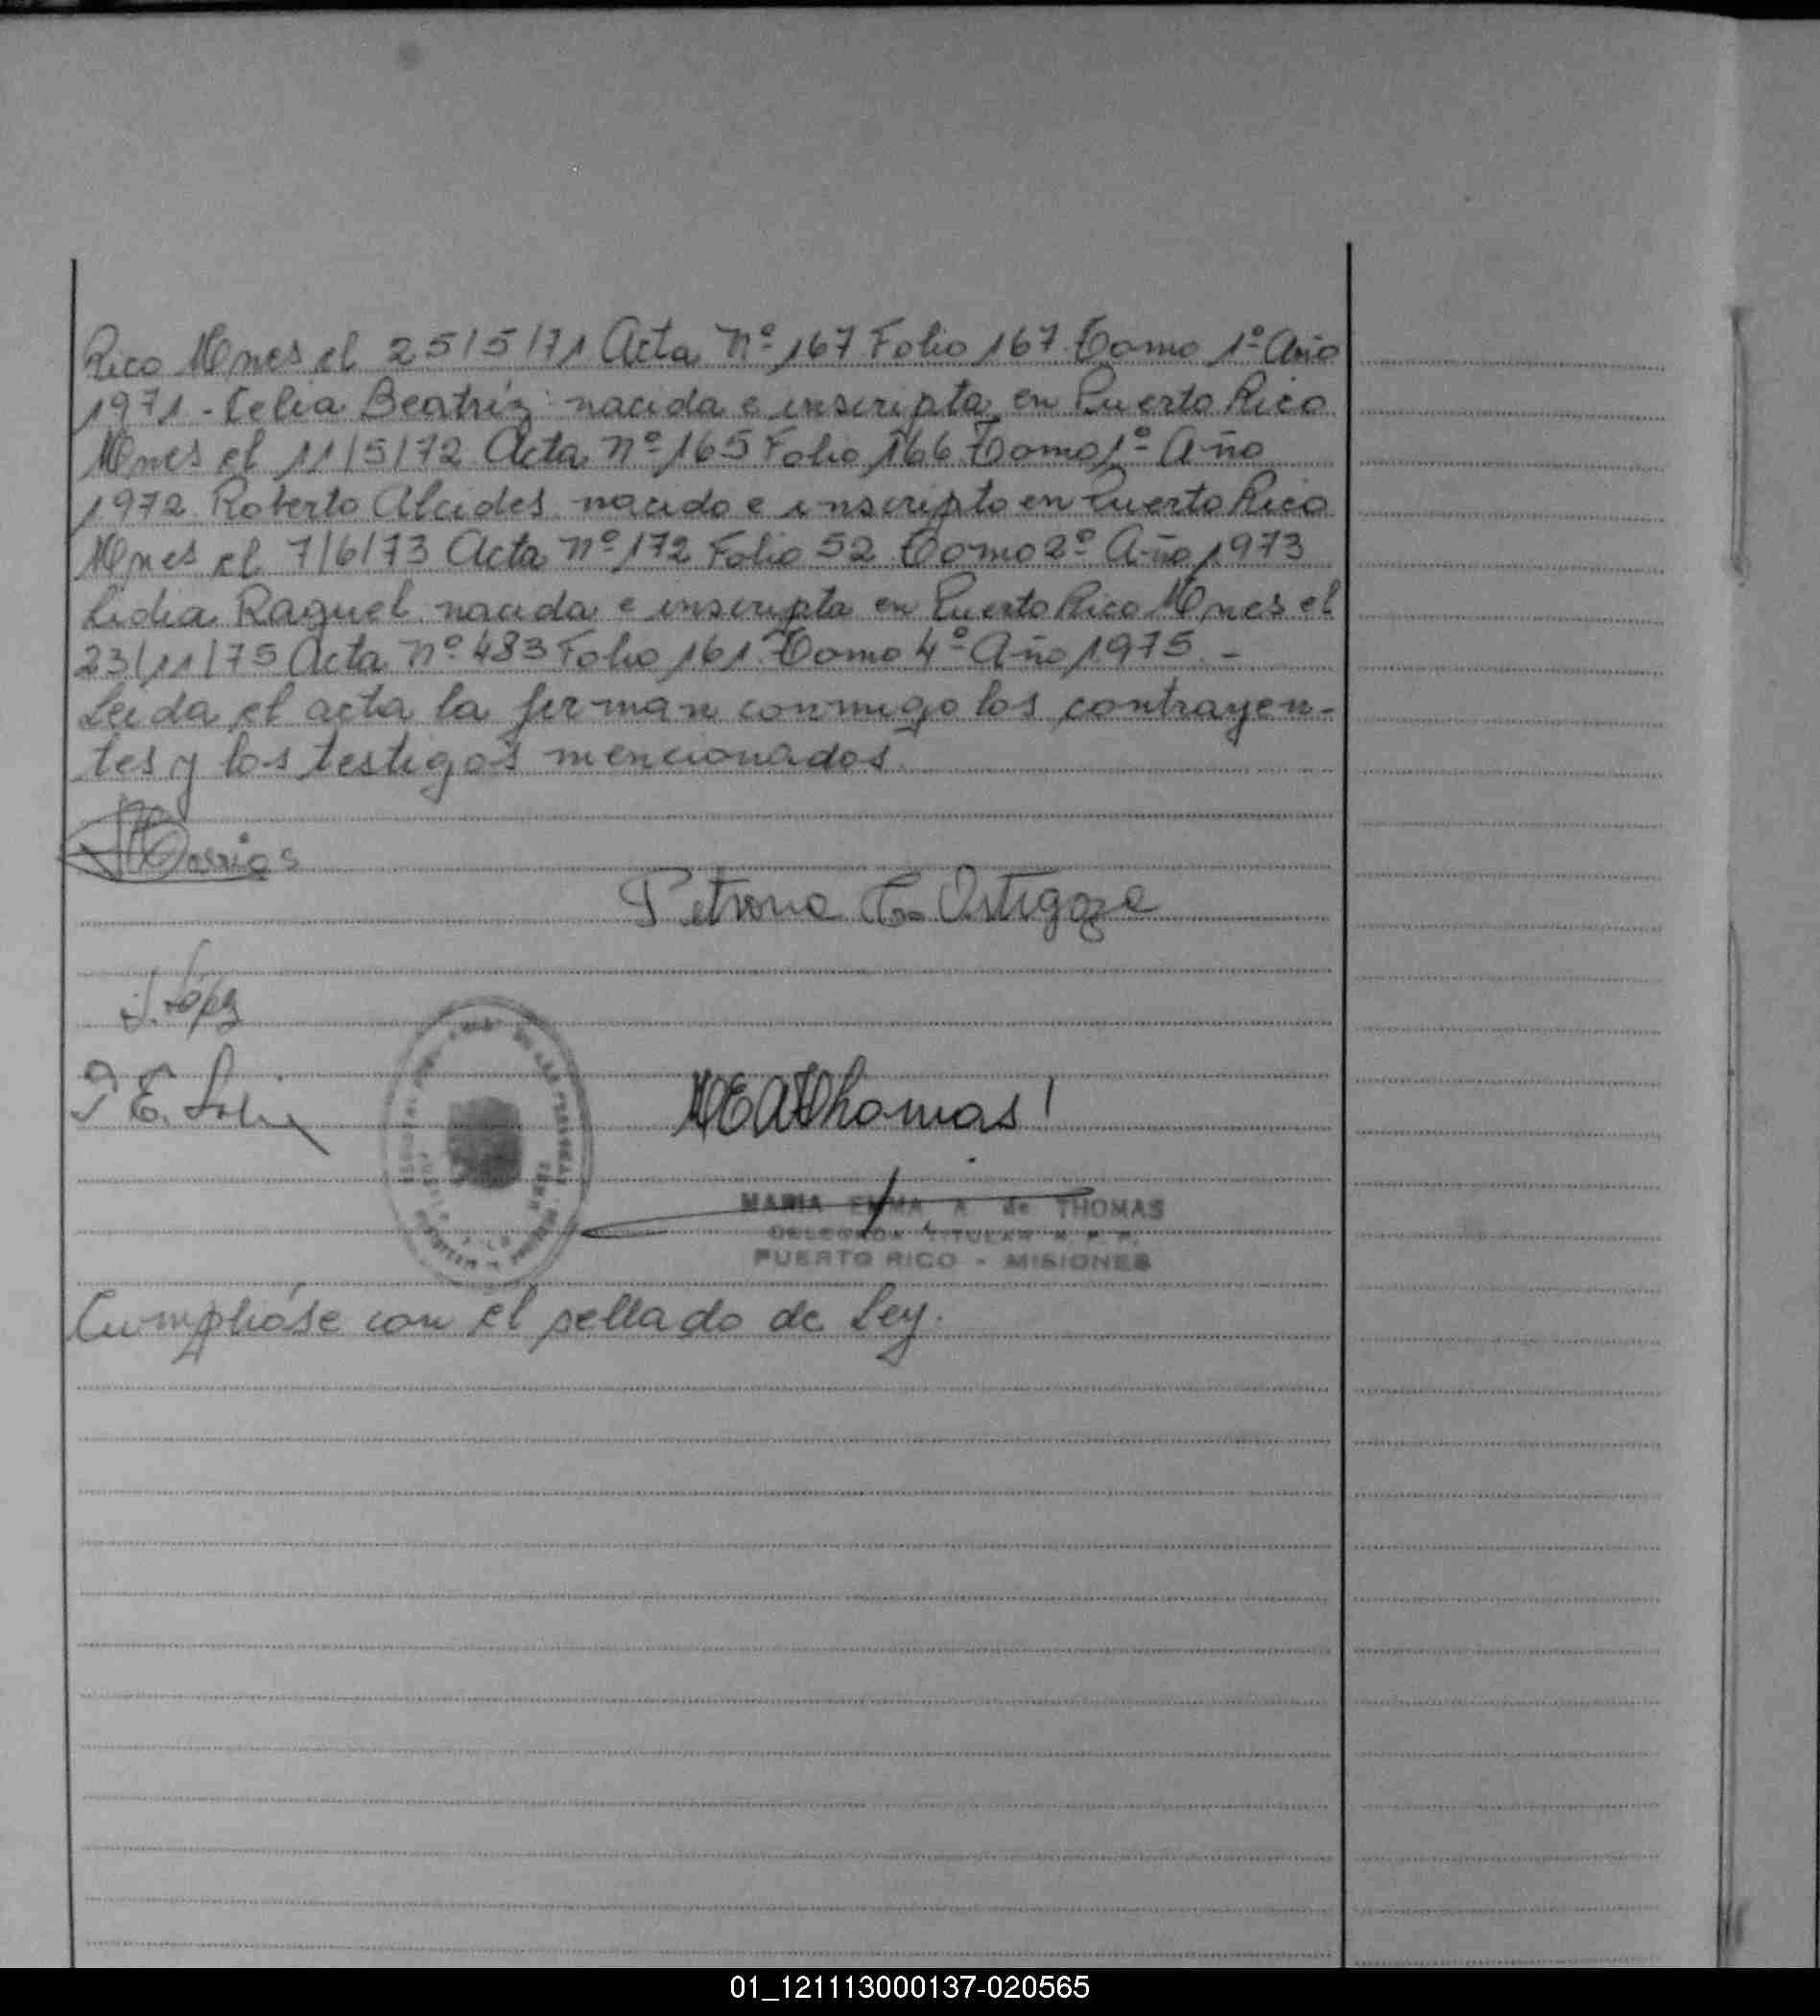 Rico Mnes el 25/5/71 Acta Nº 167 Folio 167 Tomo 1º Año
1971 - Celia Beatríz nacida e inscripta en Puerto Rico
Mnes el 11/5/72 Acta nº 165 Folio 166 Tomo 1º Año
1972. Roberto Alcides nacido e inscripto en Puerto Rico
Mnes el 7/6/73 Acta nº 172 Folio 52 Tomo 2º Año 1973
Lidia Raquel nacida e inscripta en Puerto Rico Mnes el
23/11/75 Acta nº 483 Folio 161 Tomo 4º Año 1975. -
Leida el acta la firman conmigo los contrayen-
tes y los testigos mencionados.
Petrona C. Ortigoza
J. López
P E.
MEAThomas
MARIA EMMA A. de THOMAS
DELEGADA TITULAR R. P. P.
PUERTO RICO - MISIONES
Cumplióse con el sellado de Ley.
01_121113000137-020565